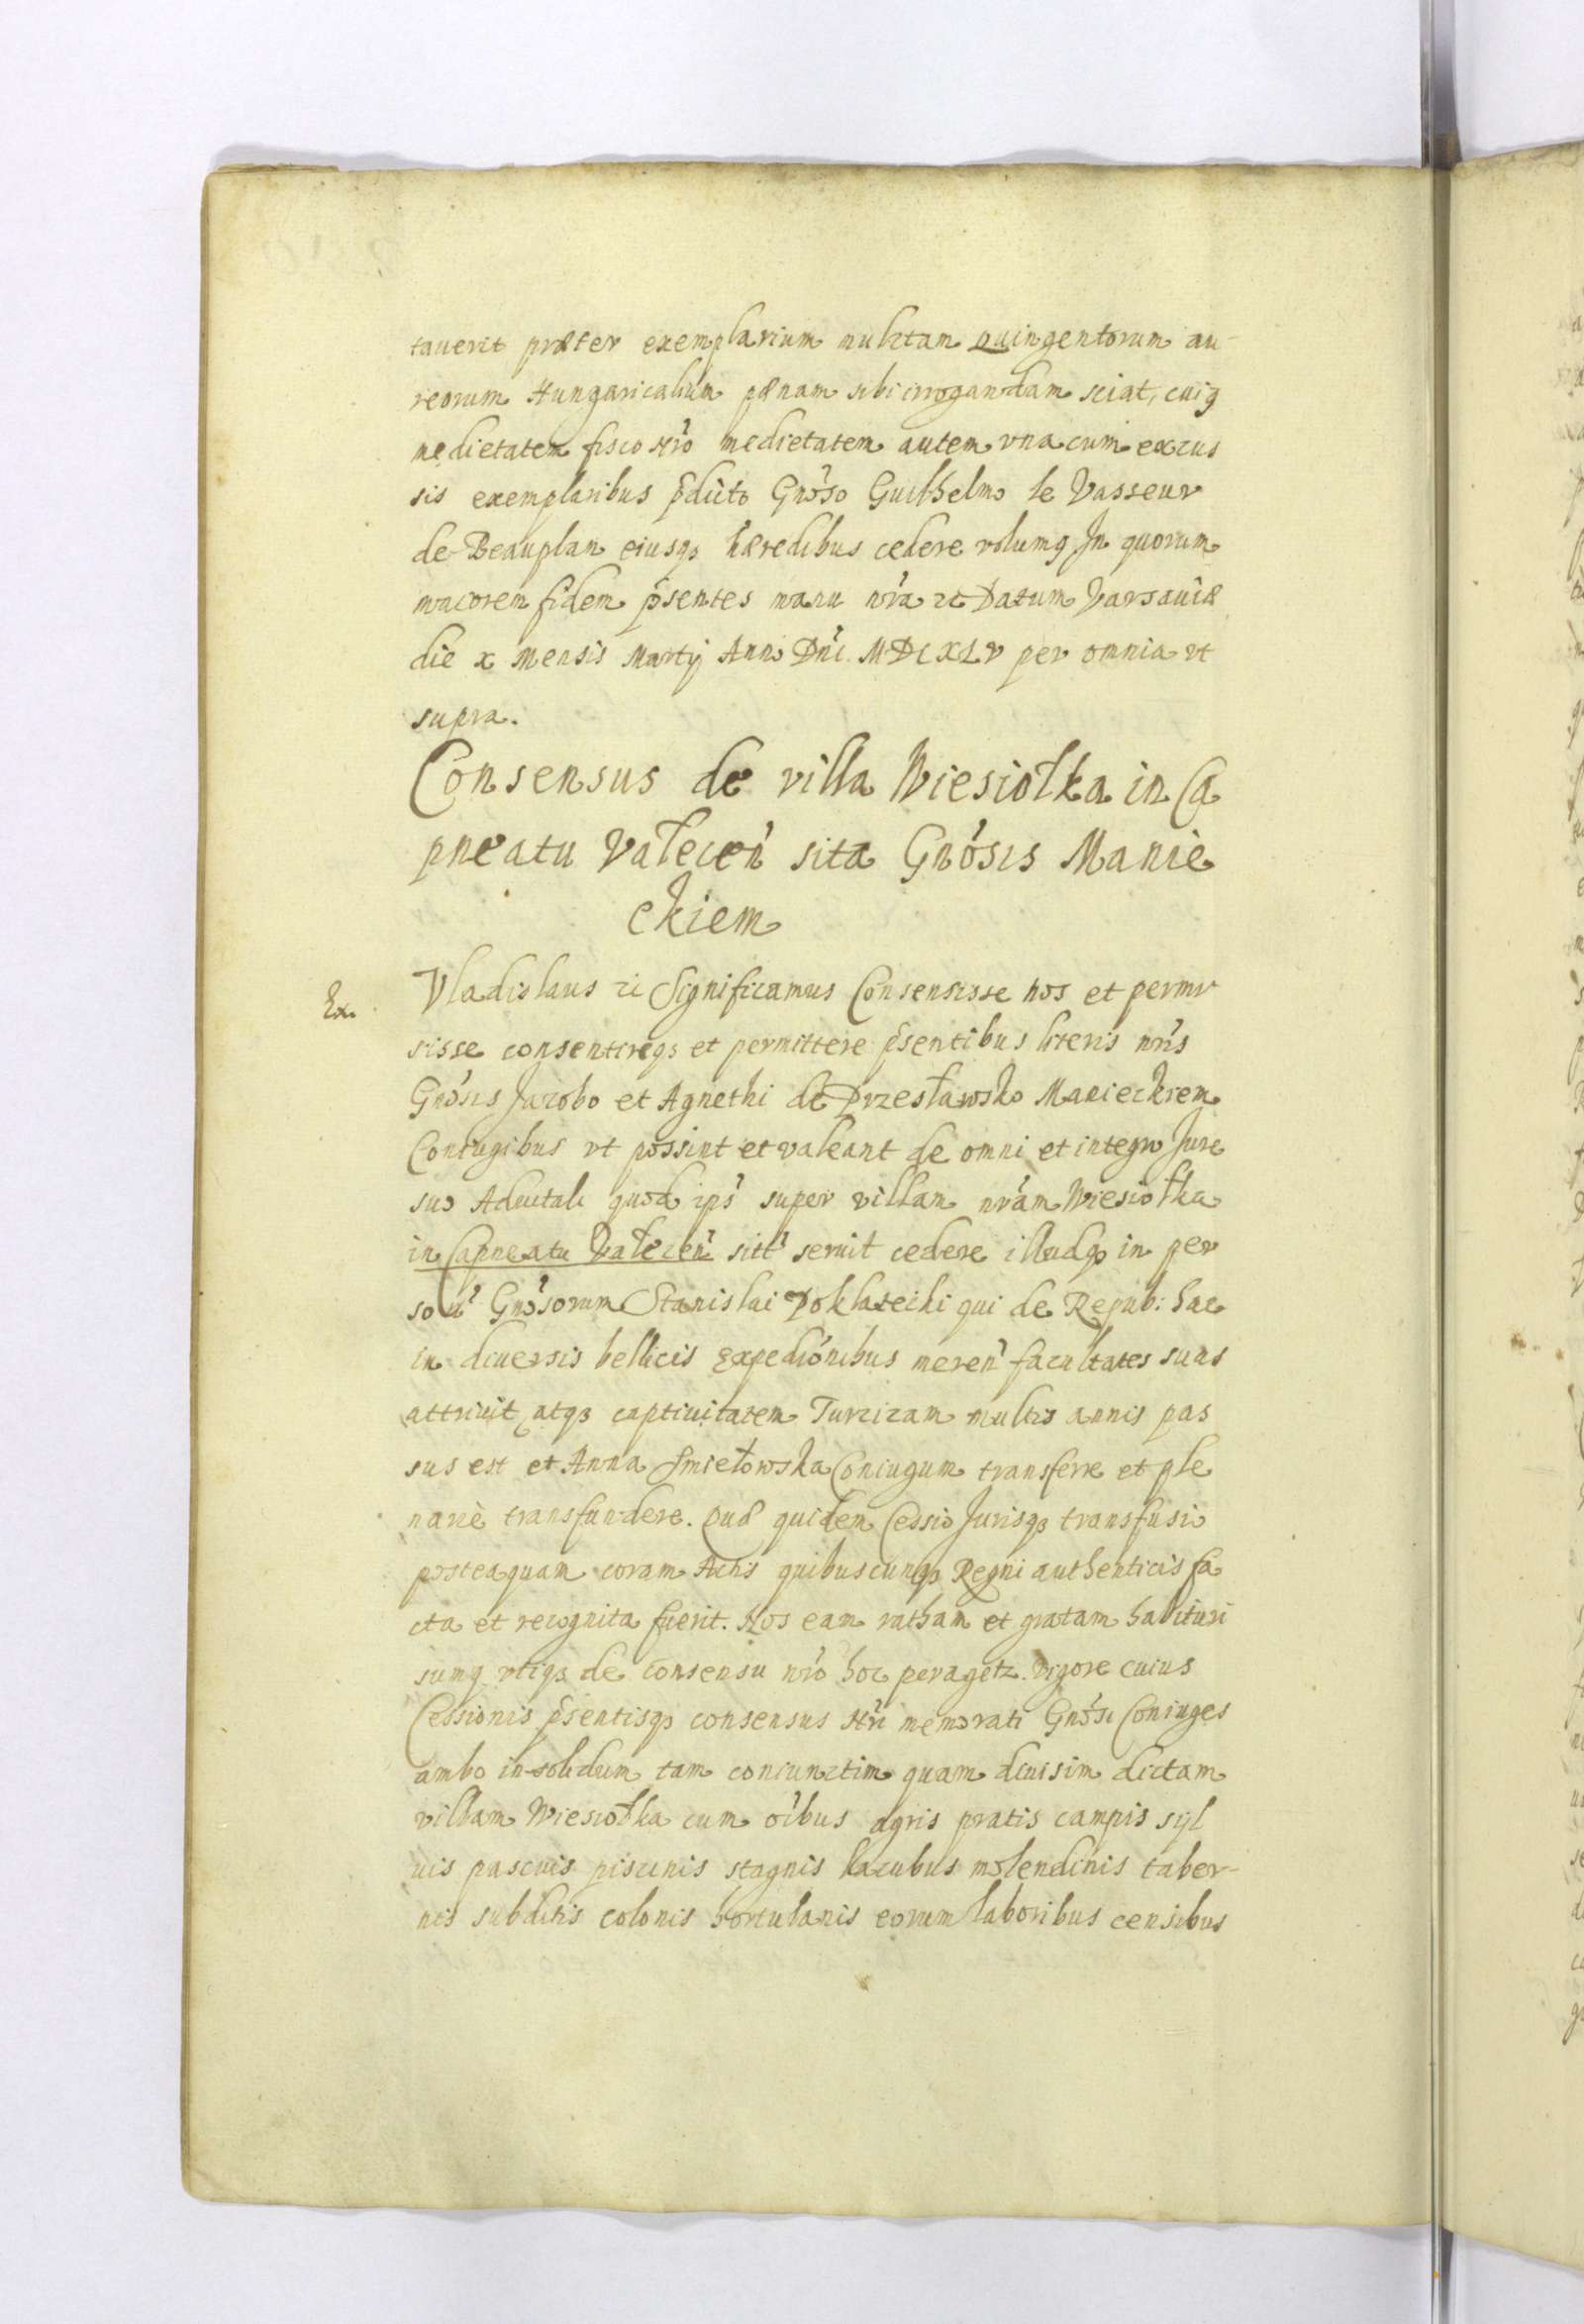 tauerit præter exemplarium mulctam quingentorum au-
reorum Hungaricalium pœnam sibi irrogandam sciat, cuiq
medietatem fisco Nrò medietatem autem vna cum excus
sis exemplaribus pdicto Gnoso Guilhelmo le Vasseur
de Beauplan eiusq hæredibus cedere volumq In quorum
maiorem fidem psentes manu nrà etc Datum Varsauiæ
die x Mensis Martij Anno Dni MDCXLV per omnia vt
supra.
Consensus de villa Wiesiołka in Ca
pneatu Valecen sita Gnosis Manie
ckiem
Ex. Vladislaus etc Significamus Consensisse nos et permi
sisse consentireq et permittere psentibus literis nris
Gnosis Jacobo et Agnethi de Przesławsko Manieckiem
Coniugibus vt possint et valeant de omni et integro Jure
suo Aduitali quod ips super villam nram Wiesiołka
in Capneatu Valecen sitt seruit cedere illudq in per
son Gnosorum Stanislai Poklatecki qui de Repub: hac
in diuersis bellicis expedionibus meren facultates suas
attriuit, atq captiuitatem Turcicam multis annis pas
sus est et Anna Smiełowska Coniugum transferre et ple
narie transfundere. Quæ quidem Cessio Jurisq transfusio
posteaquam coram Actis quibuscunq Regni authenticis fa
cta et recognita fuerit. Nos eam ratham et gratam habituri
sumq vtiq de consensu nrò hoc peragetr. vigore cuius
Cessionis psentisq consensus Nri memorati Gnosi Coniuges
ambo in solidum tam coniunctim quam diuisim dictam
villam Wiesiołka cum oibus agris pratis campis syl
uis pascuis piscinis stagnis lacubus molendinis taber-
nis subditis colonis hortulanis eorum laboribus censibus